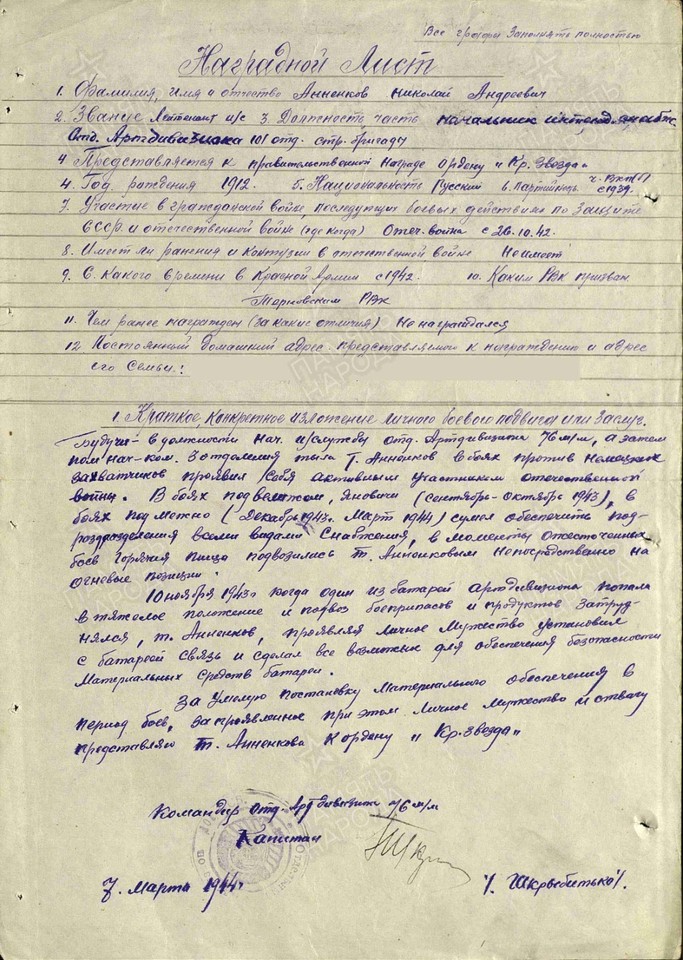 Все графы заполнять полностью
Наградной Лист
1. Фамилия, имя и отчество Анненков Николай Андреевич
2. Звание Лейтенант и/с 3. Должность, часть начальник
Отд. Артдивизиона 101 отд. стр. бригады
4 Представляется к правительственной награде ордену "Кр. Звезда"
4. Год рождения 1912. 5. Национальность Русский 6. Партийность с 1939.
7. Участие в гражданской войне, последующих боевых действиях по защите
СССР и отечественной войне (где когда) Отеч. война с 26.10.42.
8. Имеет ли ранения и контузии в отечественной войне Не имеет
9. С какого времени в Красной Армии с 1942. 10. Каким РВК призван
РВК
11. Чем ранее награжден (за какие отличия) Не награждался
12 Постоянный домашний адрес представляемого к награждению и адрес
его семьи:
1. Краткое, конкретное изложение личного боевого подвига или заслуг.
Будучи в должности нач. и/службы отд. Артдивизиона 76 м/м, а затем
пом нач-ком. 3 отделения тыла т. Анненков в боях против немецких
захватчиков проявил себя активным участником отечественной
войны. В боях под Велижом, Яновичи (сентябрь-октябрь 1943), в
боях под (Декабрь 1943г. Март 1944) сумел обеспечить под-
разделения всеми видами снабжения, в моменты ожесточенных
боев горячая пища подвозилась т. Анненковым непосредственно на
огневые позиции.
10 ноября 1943г когда один из батарей артдивизиона попала
в тяжелое положение и подвоз боеприпасов и продуктов затруд-
нялся, т. Анненков, проявляя личное мужество установил
с батареей связь и сделал все возможное для обеспечения безопасности
материальных средств батареи.
За умелую постановку материального обеспечения в
период боев, за проявленное при этом личное мужество и отвагу
представляю т. Анненкова к ордену "Кр. Звезда"
Командир Отд. Арт дивизиона 76 м/м
Капитан
7. Марта 1944г /. Шкрыбитько/.